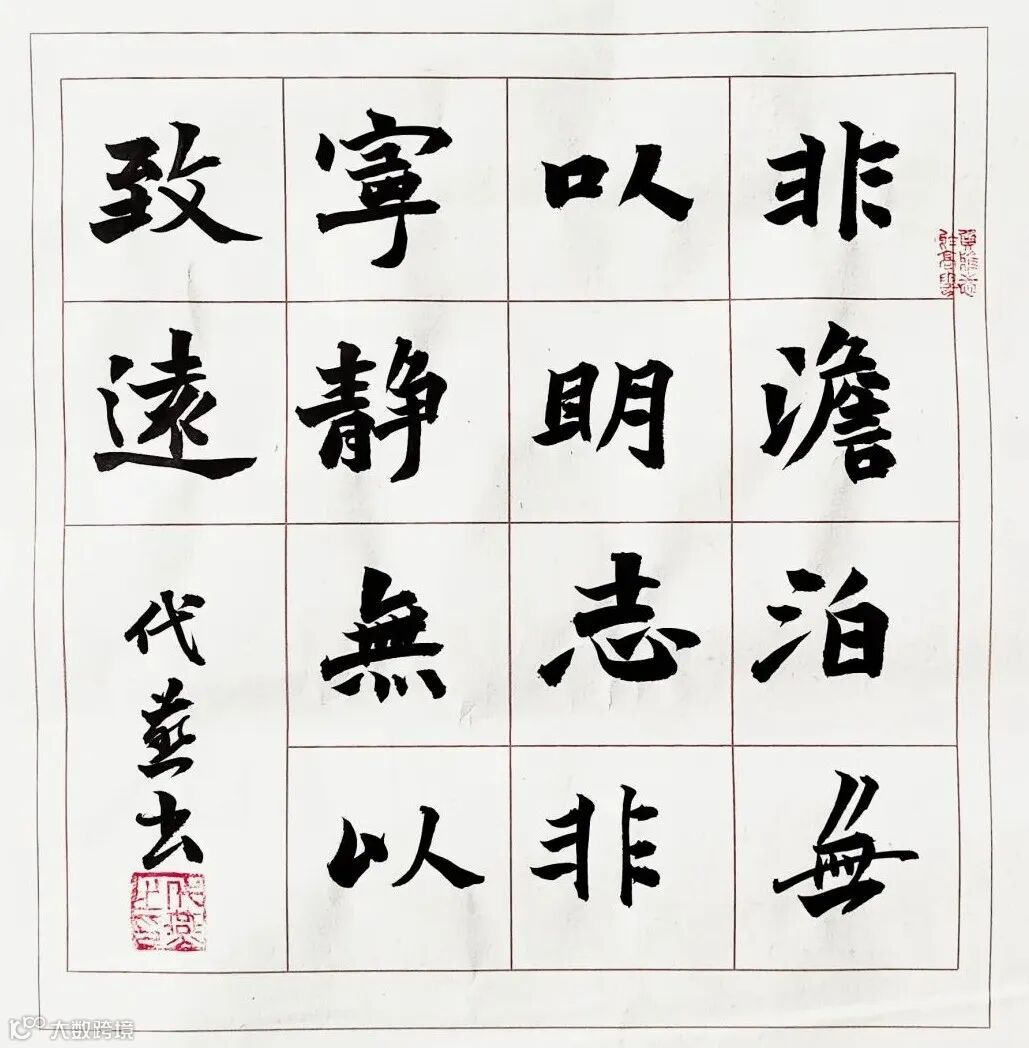 非澹泊無
以明志非
寧静無以
致遠
代燕书
大数跨境